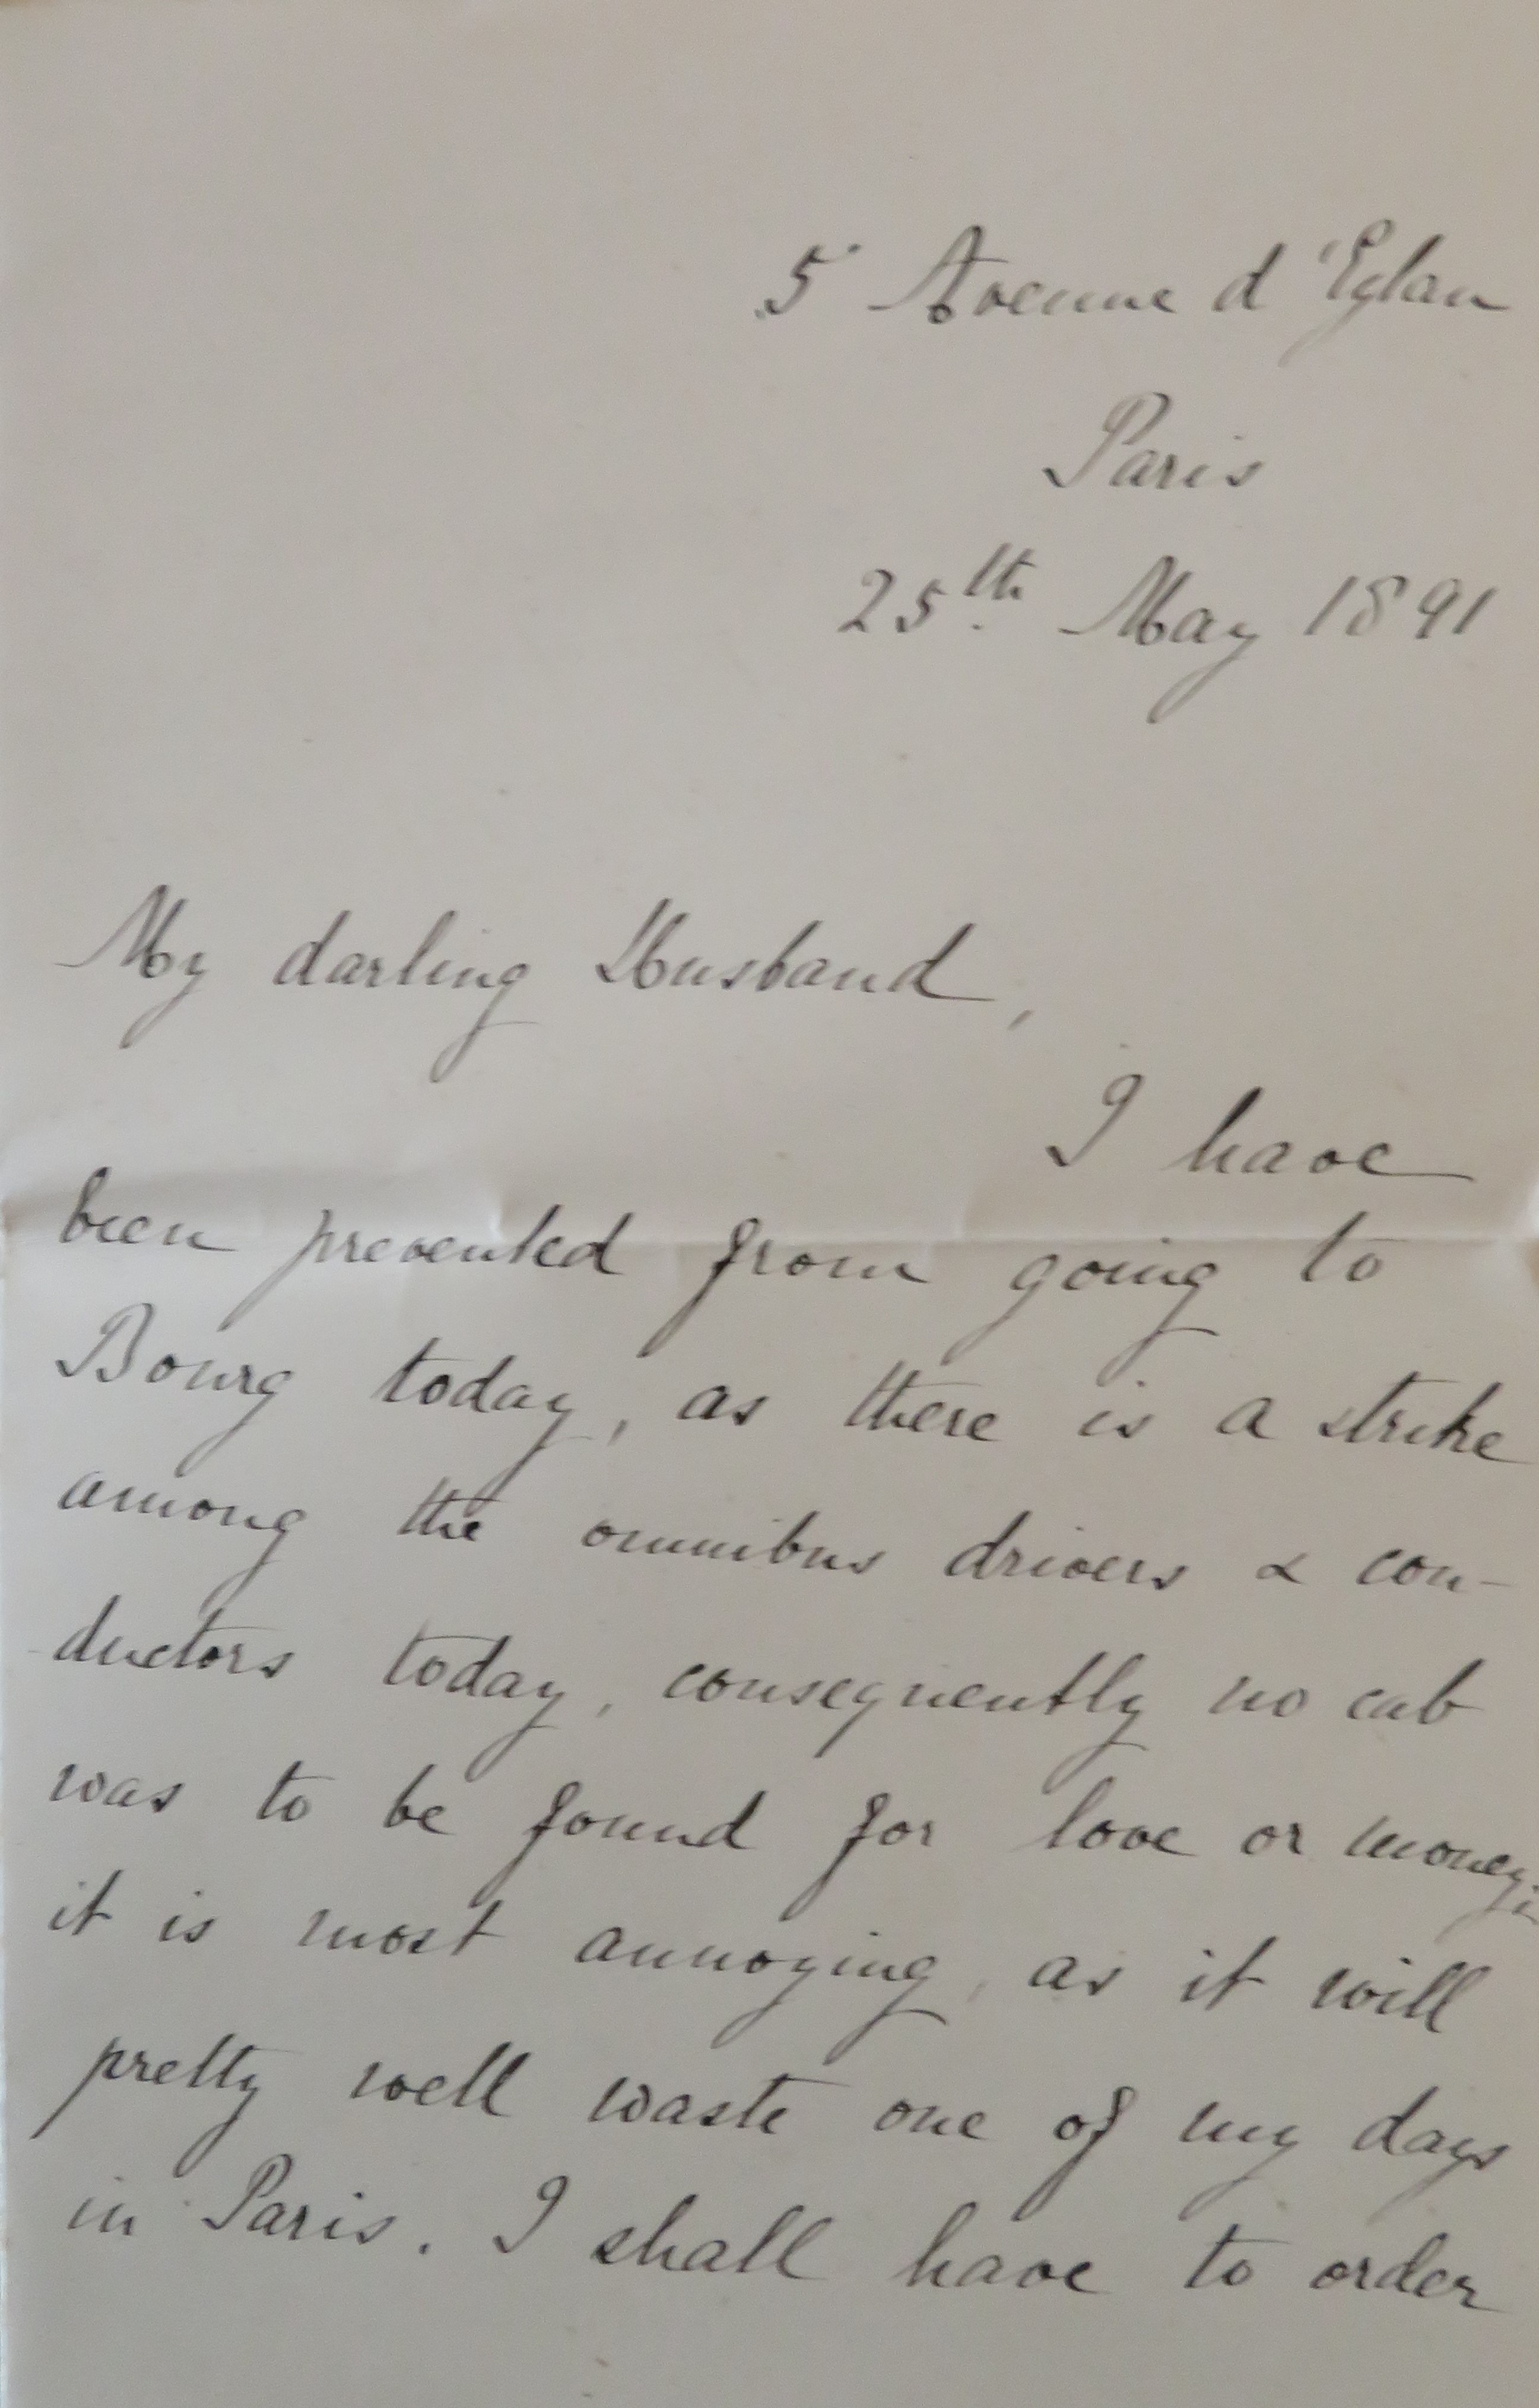 5 Avenue d'Eylau
Paris
25th May 1891
My darling Husband,
I have
been prevented from going to
Bourg today, as there is a strike
among the omnibus drivers & con-
ductors today, consequently no cab
was to be found for love or money;
it is most annoying, as it will
pretty well waste one of my days
in Paris. I shall have to order